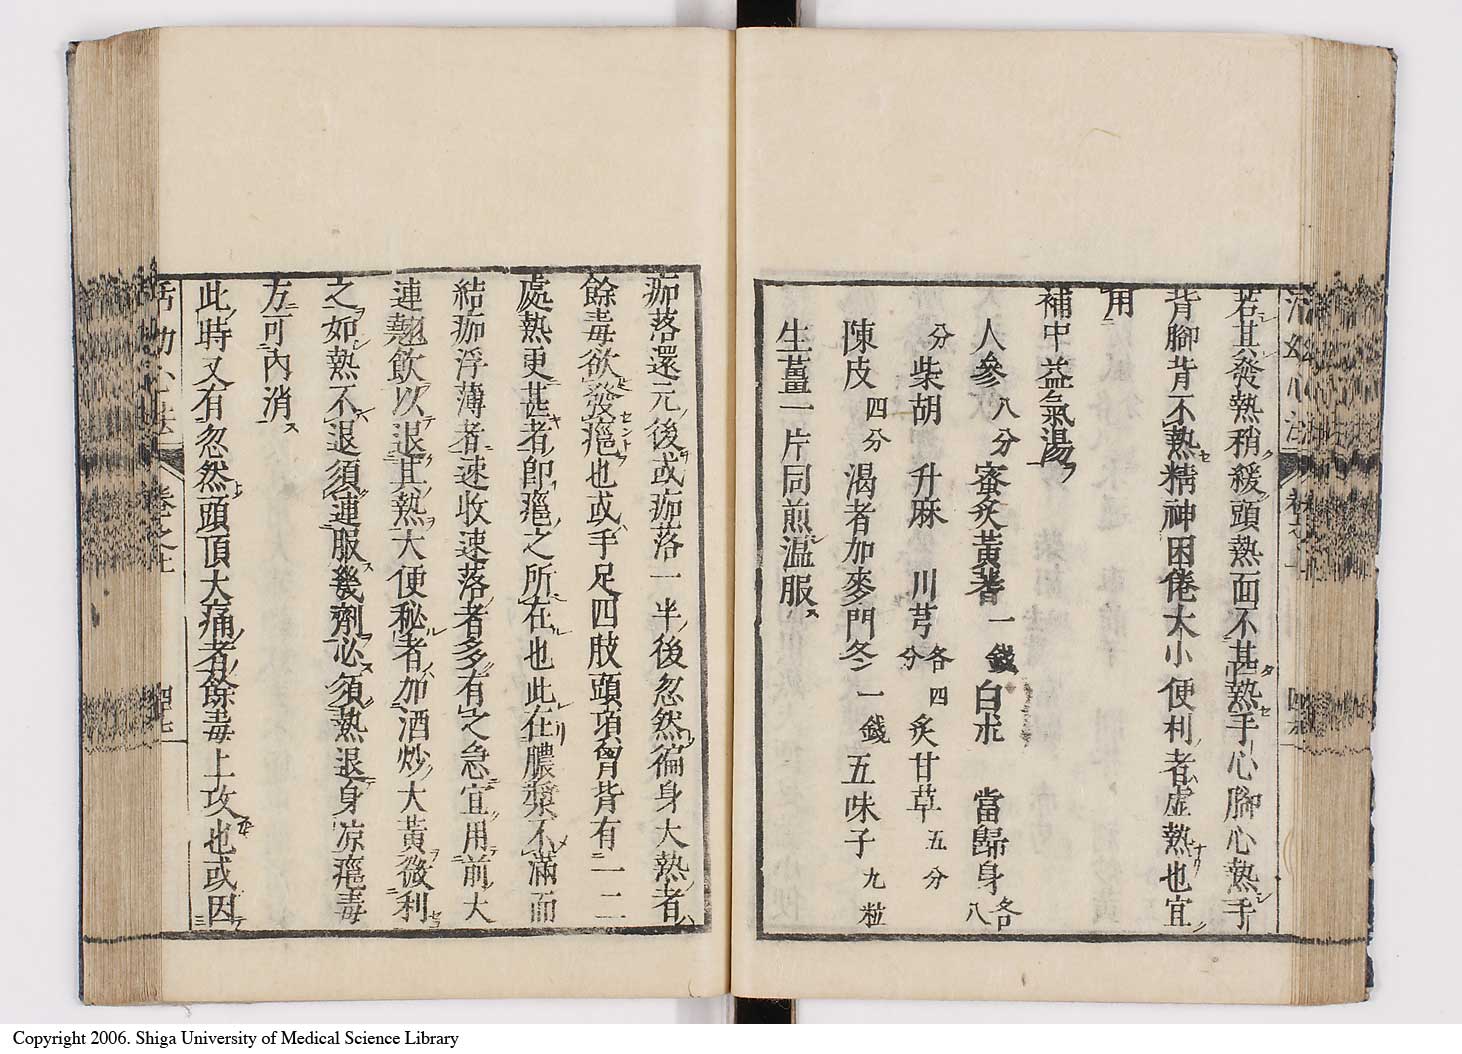 若其發熱稍緩頭熱面不甚熱手心腳心熱手
背腳背不熱精神困倦大小便利者虛熱也宜
用
補中益氣湯
人參八分 蜜炙黃芪一錢 白朮 當歸身各八
分 柴胡 升麻 川芎各四分 炙甘草五分
陳皮四分 渴者加麥門冬一錢 五味子九粒
生薑一片同煎溫服
痂落還元後或痂落一半後忽然徧身大熱者
餘毒欲發癍也或手足四肢頭項胷背有一二
處熱更甚者即癍之所在也此在膿漿不滿而
結痂浮薄者速收速落者多有之急宜用前大
連翹飲以退其熱大便秘者加酒炒大黃微利
之如熱不退須連服幾劑必須熱退身凉癍毒
方可內消
此時又有忽然頭頂大痛者餘毒上攻也或因
Copyright 2006. Shiga University of Medical Science Library